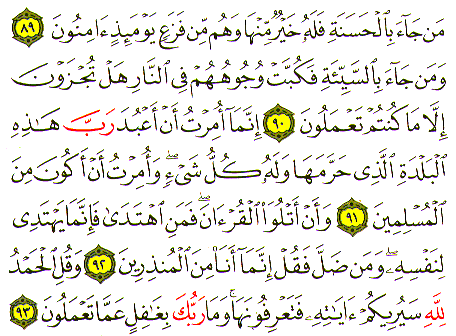 مَن جَآءَ بِٱلْحَسَنَةِ فَلَهُۥ خَيْرٌ مِّنْهَا وَهُم مِّن فَزَعٍ يَوْمَئِذٍ ءَامِنُونَ ٨٩
وَمَن جَآءَ بِٱلسَّيِّئَةِ فَكُبَّتْ وُجُوهُهُمْ فِى ٱلنَّارِ هَلْ تُجْزَوْنَ
إِلَّا مَا كُنتُمْ تَعْمَلُونَ ٩٠ إِنَّمَآ أُمِرْتُ أَنْ أَعْبُدَ رَبَّ هَٰذِهِ
ٱلْبَلْدَةِ ٱلَّذِى حَرَّمَهَا وَلَهُۥ كُلُّ شَىْءٍ ۖ وَأُمِرْتُ أَنْ أَكُونَ مِنَ
ٱلْمُسْلِمِينَ ٩١ وَأَنْ أَتْلُوَا۟ ٱلْقُرْءَانَ ۖ فَمَنِ ٱهْتَدَىٰ فَإِنَّمَا يَهْتَدِى
لِنَفْسِهِۦ ۖ وَمَن ضَلَّ فَقُلْ إِنَّمَآ أَنَا۠ مِنَ ٱلْمُنذِرِينَ ٩٢ وَقُلِ ٱلْحَمْدُ
لِلَّهِ سَيُرِيكُمْ ءَايَٰتِهِۦ فَتَعْرِفُونَهَا ۚ وَمَا رَبُّكَ بِغَٰفِلٍ عَمَّا تَعْمَلُونَ ٩٣